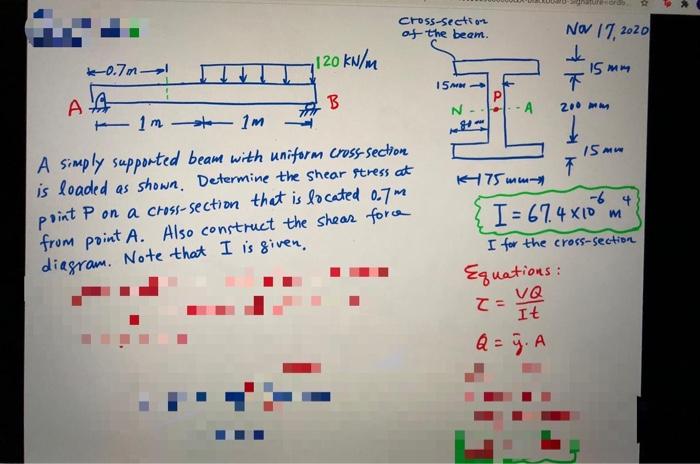 Cross-section
of the beam.
Nov 17, 2020
120 kN/m
0.7m
A
B
1m
1m
15mm
P
N
A
80 mm
15 mm
200 mm
15 mm
175 mm
A simply supported beam with uniform cross-section
is loaded as shown. Determine the shear stress at
point P on a cross-section that is located 0.7m
from point A. Also construct the shear force
diagram. Note that I is given.
I = 67.4 x 10⁻⁶ m⁴
I for the cross-section
Equations:
τ = VQ/It
Q = ȳ. A